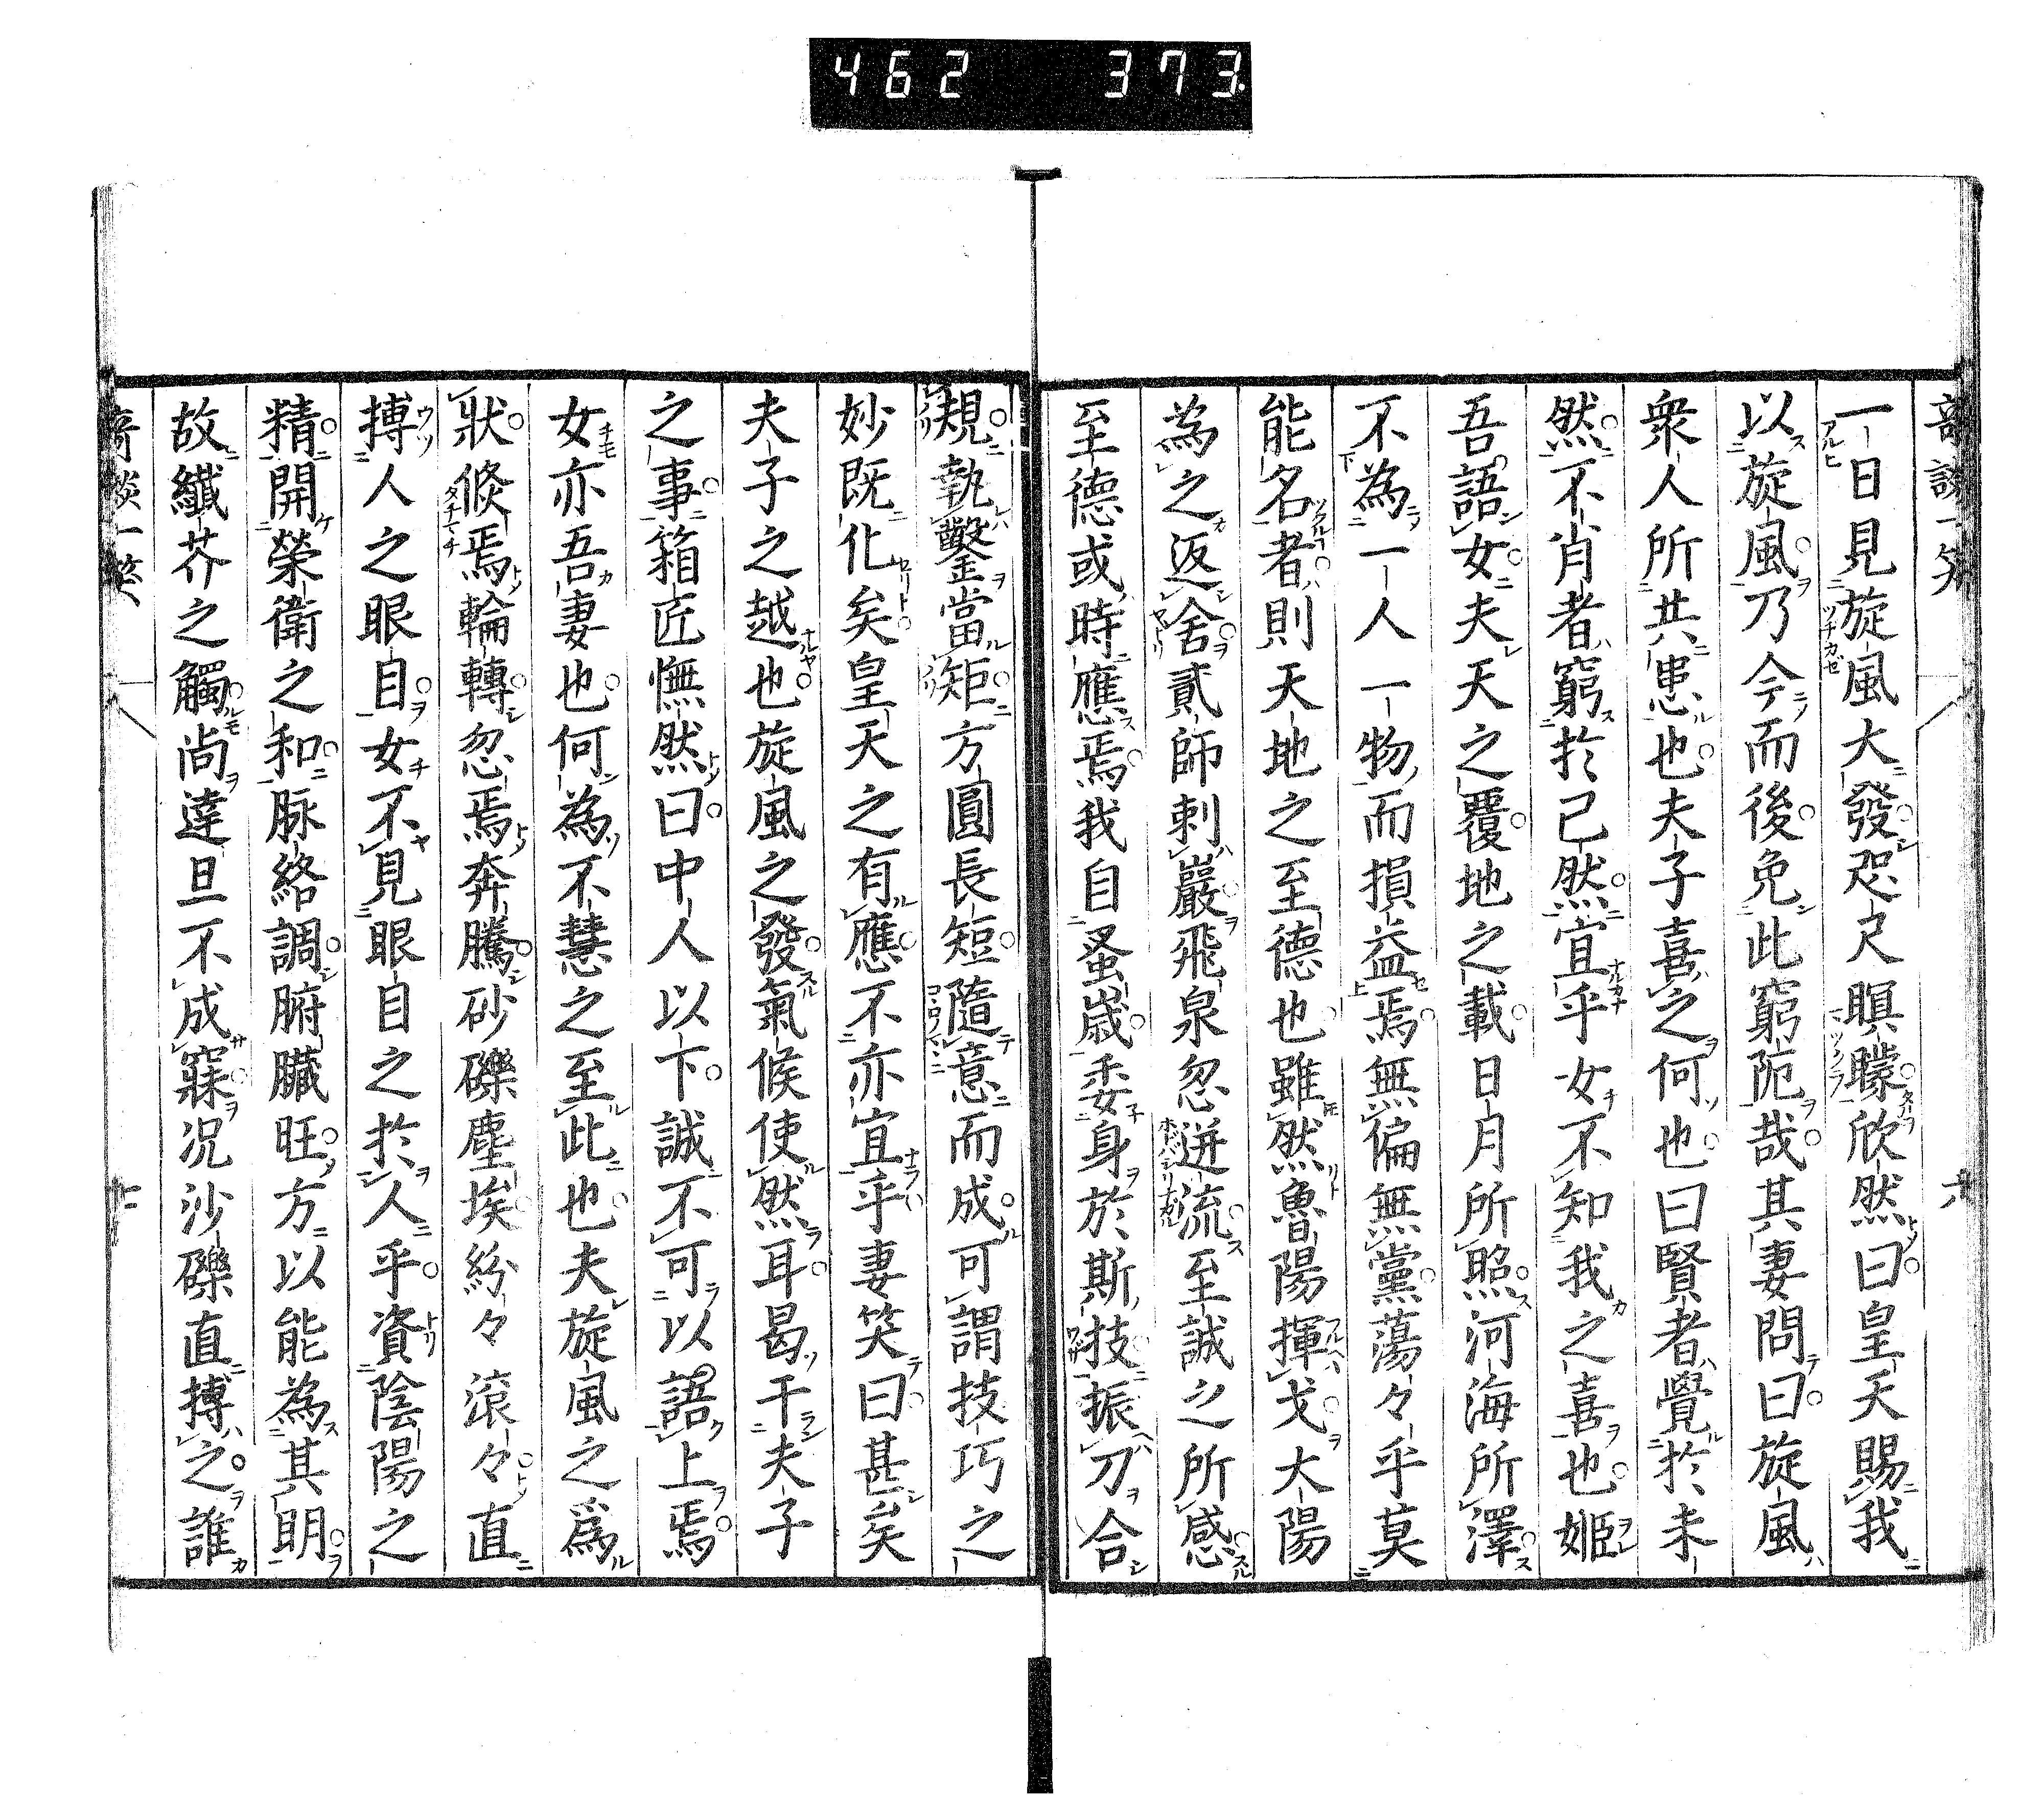 462 373
奇談一笑 六
一日見旋風大發咫尺瞑矇欣然曰皇天賜我
以旋風乃今而後免此窮阨哉其妻問曰旋風
衆人所共患也夫子喜之何也曰賢者覺於未
然不肖者窮於已然宜乎女不知我之喜也姫
吾語女夫天之覆地之載日月所照河海所澤
不為一人一物而損益焉無偏無黨蕩々乎莫
能名者則天地之至德也雖然魯陽揮戈大陽
為之返舍貳師刺巖飛泉忽迸流至誠之所感
至德或時應焉我自蚤歲委身於斯技振刀合
規執鑿當矩方圓長短隨意而成可謂技巧之
妙既化矣皇天之有應不亦宜乎妻笑曰甚矣
夫子之越也旋風之發氣候使然耳曷干夫子
之事箱匠憮然曰中人以下誠不可以語上焉
女亦吾妻也何為不慧之至此也夫旋風之為
狀倏焉輪轉忽焉奔騰砂礫塵埃紛々滾々直
搏人之眼目女不見眼目之於人乎資陰陽之
精開榮衛之和脉絡調腑臟旺方以能為其明
故纎芥之觸尚達旦不成寐况沙礫直搏之誰
奇談一笑